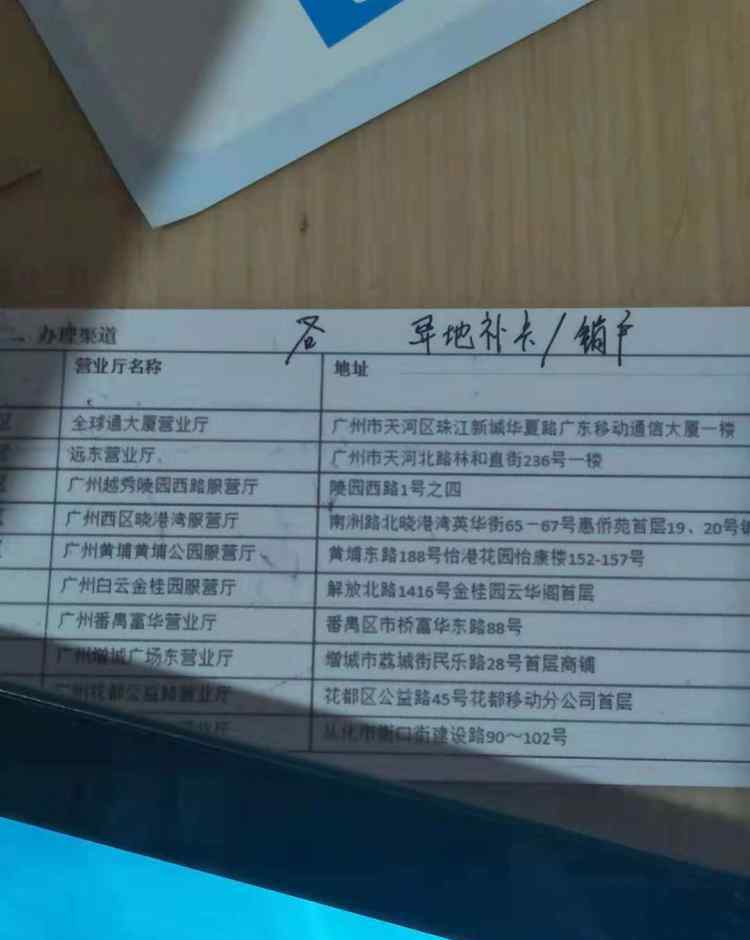 办理渠道 各 异地补卡/销户
营业厅名称 地址
全球通大厦营业厅 广州市天河区珠江新城华夏路广东移动通信大厦一楼
远东营业厅 广州市天河北路林和直街236号一楼
广州越秀陵园西路服营厅 陵园西路1号之四
广州西区晓港湾服营厅 南洲路北晓港湾英华街65-67号惠侨苑首层19、20号
广州黄埔黄埔公园服营厅 黄埔东路188号怡港花园怡康楼152-157号
广州白云金桂园服营厅 解放北路1416号金桂园云华阁首层
广州番禺富华营业厅 番禺区市桥富华东路88号
广州增城广场东营业厅 增城市荔城街民乐路28号首层商铺
广州花都公益路营业厅 花都区公益路45号花都移动分公司首层
从化市街口街建设路90～102号